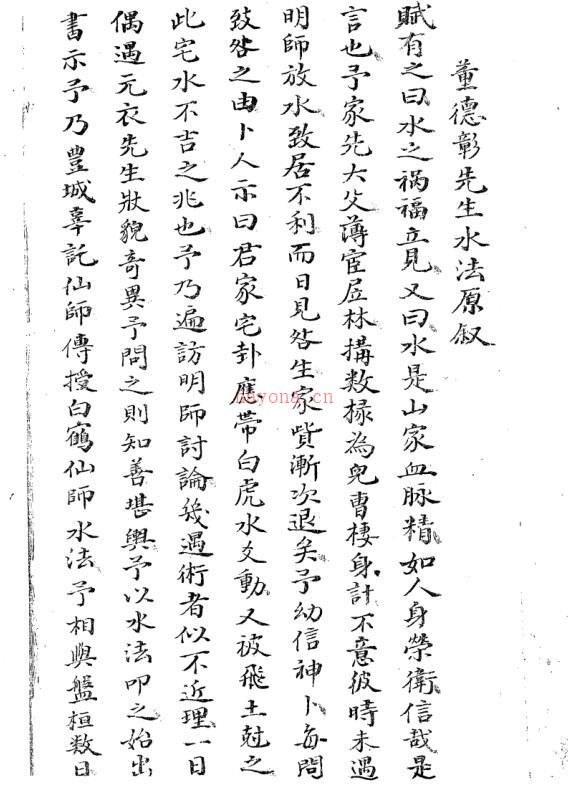 董德彰先生水法原叙
賦有之曰水之禍福立見又曰水是山家血脉精如人身榮衛信哉是
言也予家先大父薄宦居林搆数椽為兒曹棲身計不意彼時未遇
明師放水致居不利而日見咎生家貲漸次退矣予幼信神卜每問
致咎之由卜人示曰君家宅卦應帶白虎水爻動又被飛土尅之
此宅水不吉之兆也予乃遍訪明師討論幾遇術者似不近理一日
偶遇元衣先生狀貌竒異予問之則知善堪輿予以水法叩之始出
書示予乃豐城辜託仙師傳授白鶴仙師水法予相與盤桓数日
nayona.cn